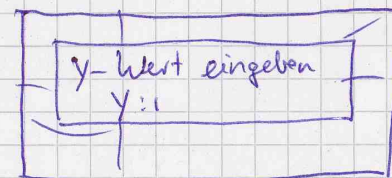 y-Wert eingeben
y: